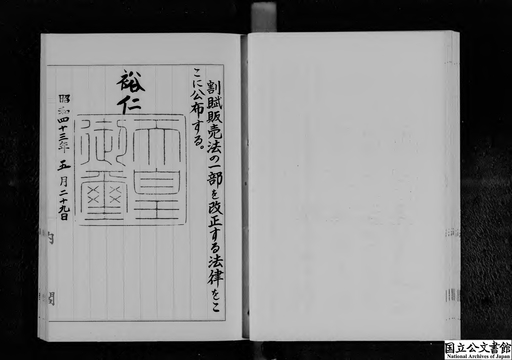 割賦販売法の一部を改正する法律をこ
こに公布する。
裕仁
天皇
御璽
昭和四十三年五月二十九日
内閣
国立公文書館
National Archives of Japan